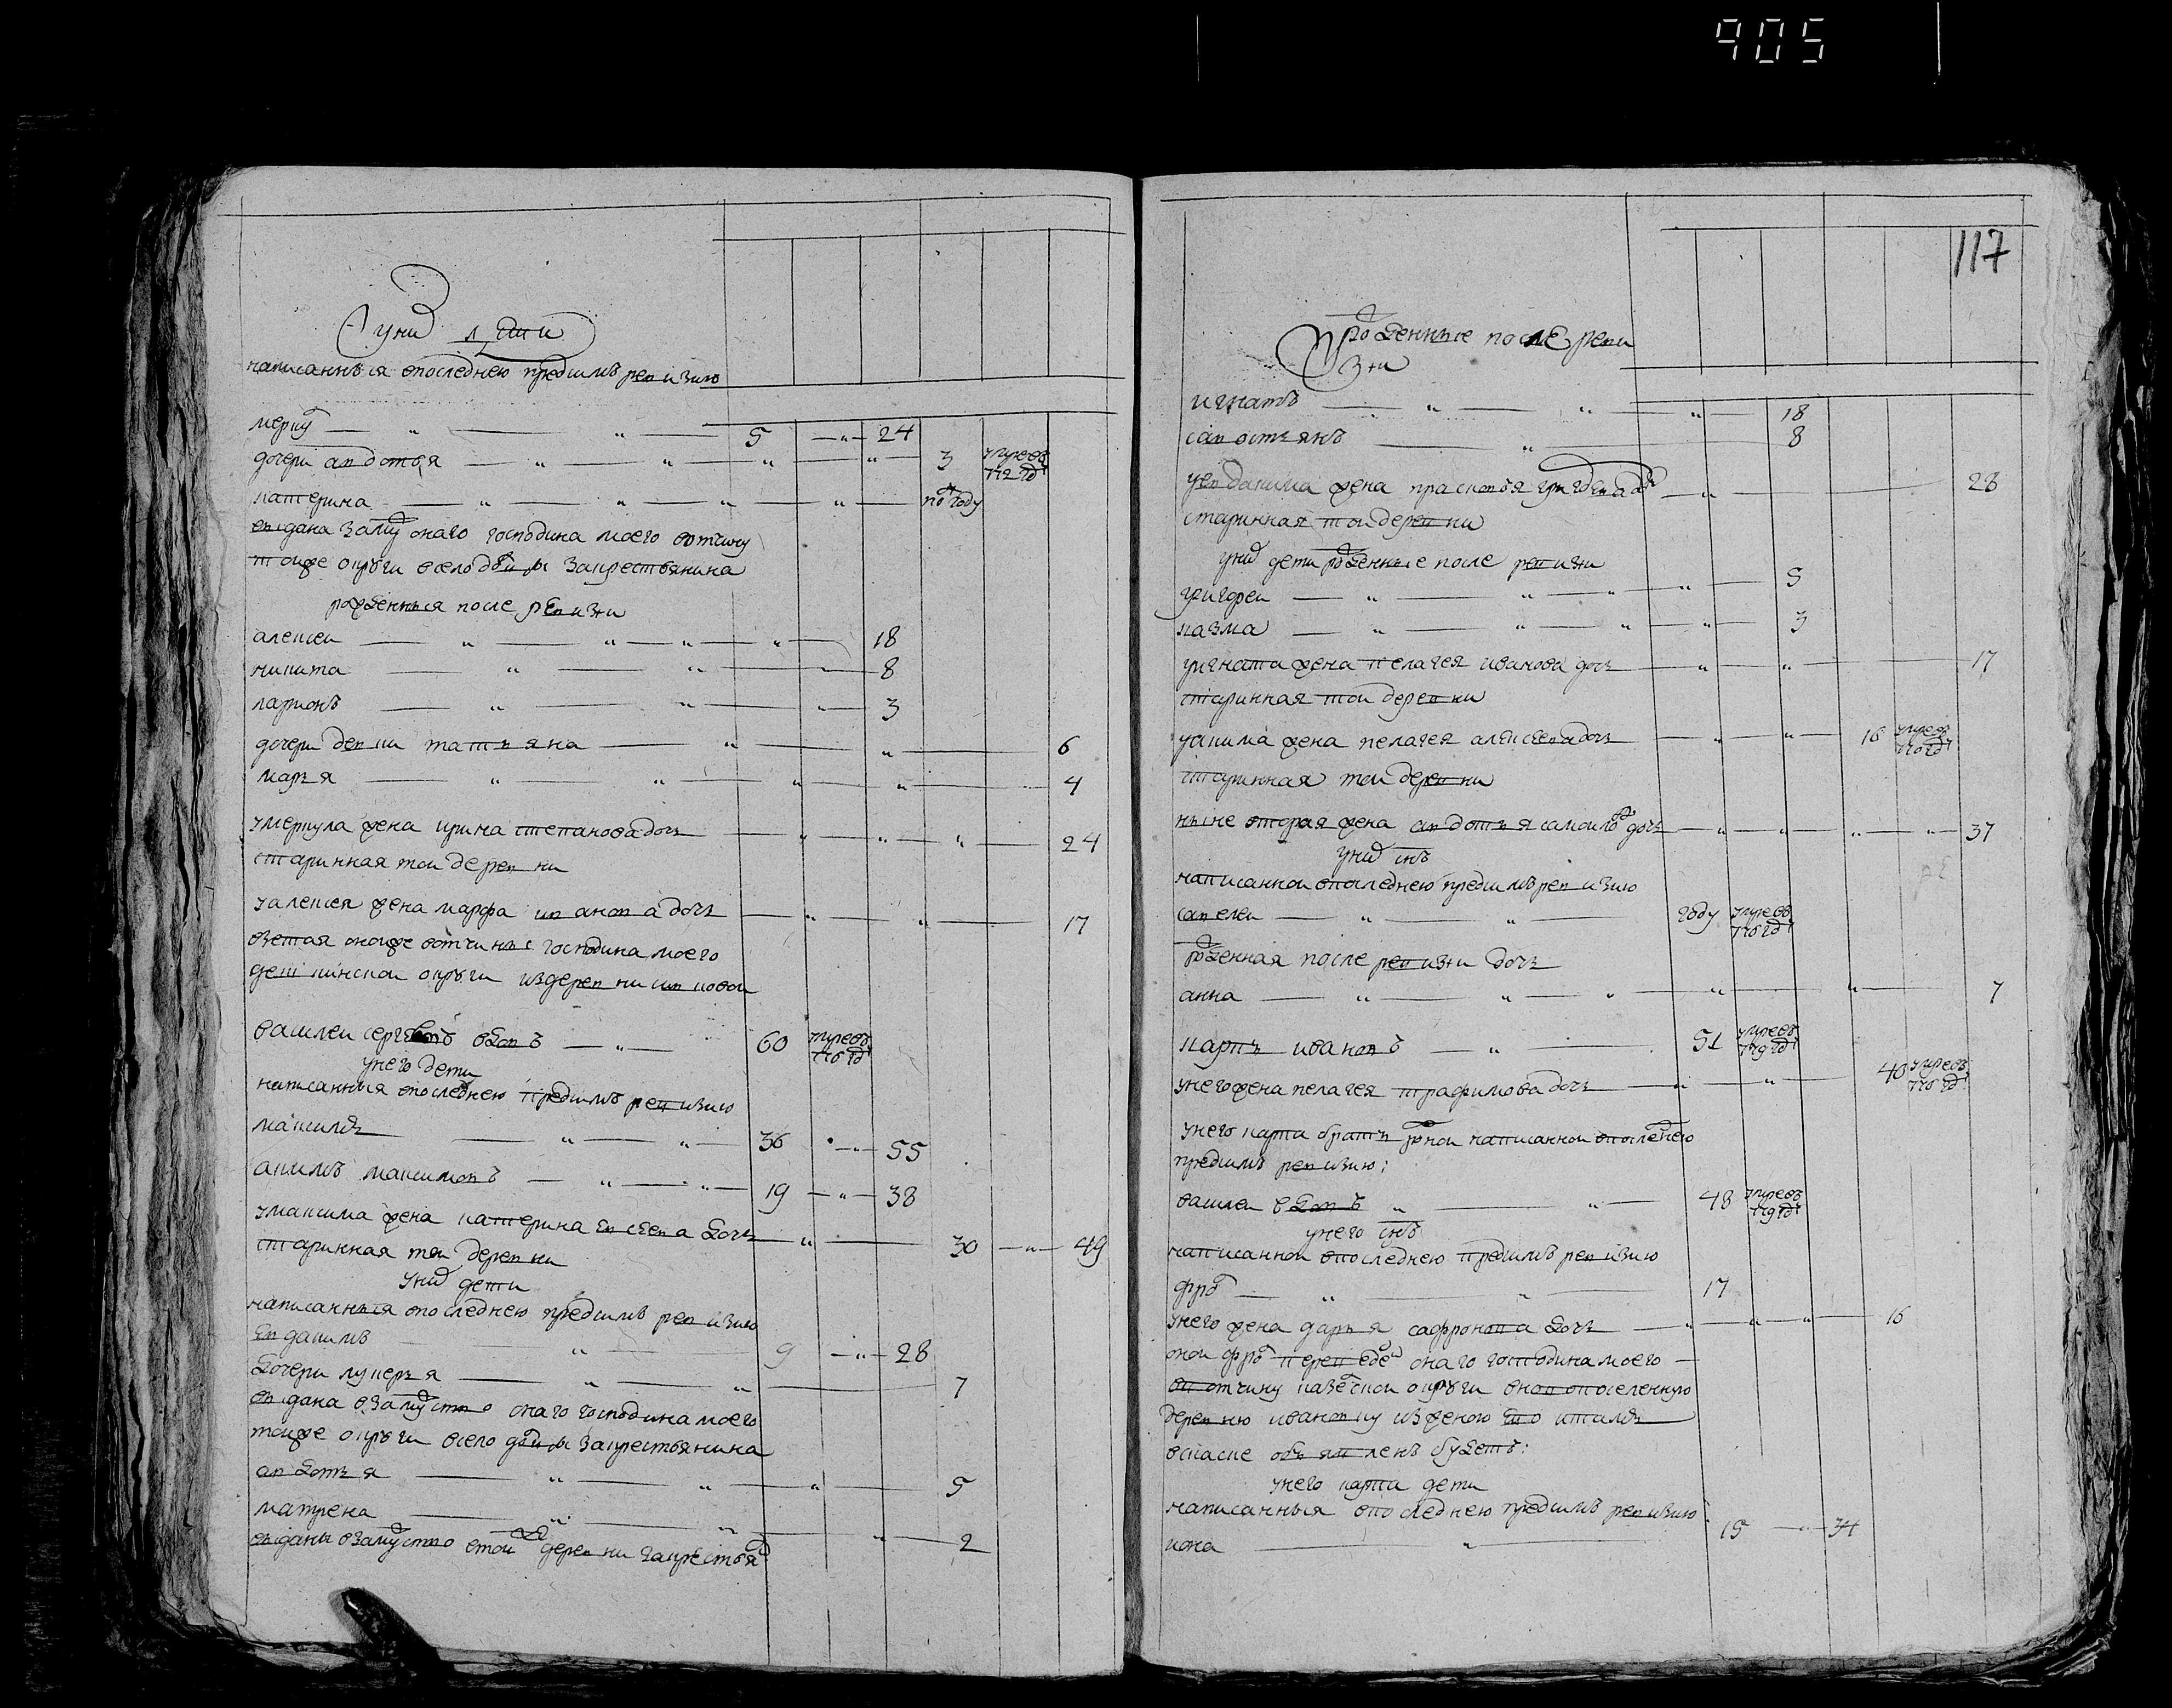 905
у них дети
написанныя впоследнею предсимъ ревизию
меркул 5 24
дочери авдотья 3 умре въ 772 год
катерина по году
выдана замуж онаго господина моего вотчину
тоиже округи всело закрестьянина
рожденныя после ревизии
алексеи 18
никита 8
ларионъ 3
дочери девки татьяна 6
марья 4
умеркула жена ирина степанова дочь 24
старинная тои деревни
уалексея жена марфа иванова дочь 17
взетая оноиже вотчины господина моего
округи издеревни
василеи вдовъ 60 умре въ 776 год
унего дети
написанныя впоследнею предсимъ ревизию
максимъ 36 55
акимъ максимовъ 19 38
умаксима жена катерина евсеева дочь 30 49
старинная тои деревни
уних дети
написанныя впоследнею предсимъ ревизию
евдакимъ 9 28
дочери лукерья 7
выдана взамуство онаго господина моего
тоиже округи всело закрестьянина
авдотья 5
матрена 2
выданы взамуство етои деревни закрестьян
117
Рожденные после реви
зии
игнатъ 18
савостьянъ 8
уевдакима жена прасковья 28
старинная тои деревни
уних дети рожденные после ревизии
григореи 5
казма 3
уигната жена пелагея иванова дочь 17
старинная тои деревни
уакима жена пелагея алексеева дочь 16 умре въ 776 год
старинная тои деревни
ныне вторая жена авдотья самоилова дочь 37
уних сынъ
написаннои впоследнею предсимъ ревизию
савелеи году умре въ 776 год
рожденная после ревизии дочь
анна 7
карпъ ивановъ 51 умре въ 779 год
унего жена пелагея трафимова дочь 40 умре въ 776 год
унего карпа братъ роднои написаннои впоследнею
предсимъ ревизию:
василеи вдовъ 48 умре въ 779 год
унего сынъ
написаннои впоследнею предсимъ ревизию
фрол 17
унего жена дарья сафронова дочь 16
онои фрол переведен онаго господина моего
ввотчину округи вновопоселенную
деревню ивановку изженою ево итамъ
всказке объявленъ будетъ:
унего карпа дети
написанныя впоследнею предсимъ ревизию
иона 15 34